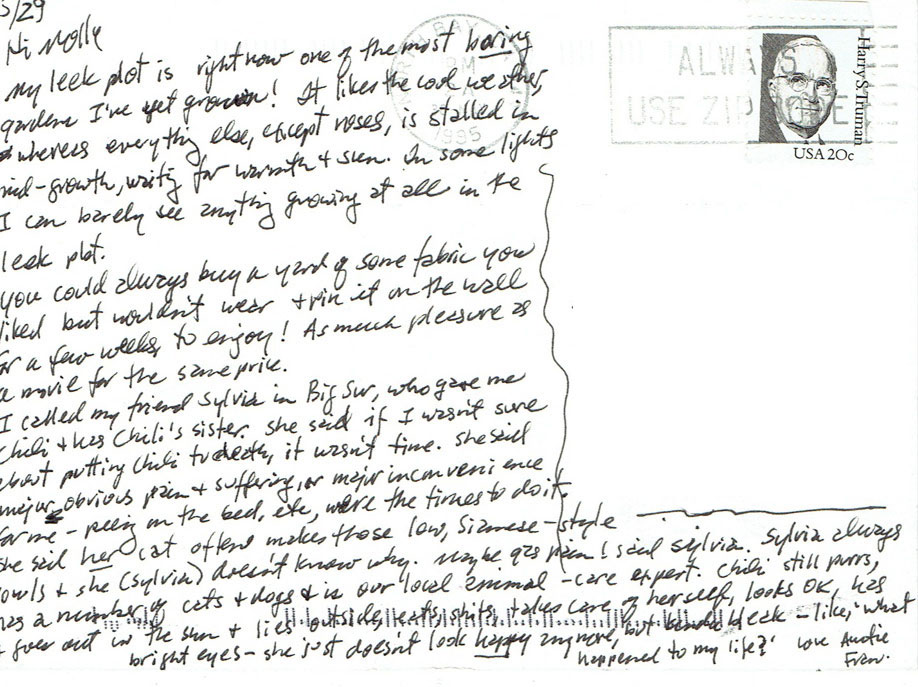 5/29
Hi Molly
My leek plot is right now one of the most boring
gardens I've yet grown! It likes the cool weather,
whereas everything else, except roses, is stalled in
mid-growth, waiting for warmth + sun. In some lights
I can barely see anything growing at all in the
leek plot.
You could always buy a yard of some fabric you
liked but wouldn't wear + pin it on the wall
for a few weeks, to enjoy! As much pleasure as
a movie for the same price.
I called my friend Sylvia in Big Sur, who gave me
Chili + has Chili's sister. She said if I wasn't sure
about putting Chili to death, it wasn't time. She said
major obvious pain + suffering, or major inconvenience
for me - peeing on the bed, etc, were the times to do it.
She said her cat often makes those low, Siamese-style
yowls + she (Sylvia) doesn't know why. Maybe gas pain! said Sylvia. Sylvia always
has a number of cats + dogs + is our local animal-care expert. Chili still purrs,
+ goes out in the sun + lies outside, eats, shits, takes care of herself, looks OK, has
bright eyes - she just doesn't look happy anymore, but kinda bleak - like, 'what
happened to my life?' Love Auntie
Fran.
PM
1995
ALWAYS
USE ZIP CODE
Harry S. Truman
USA 20c